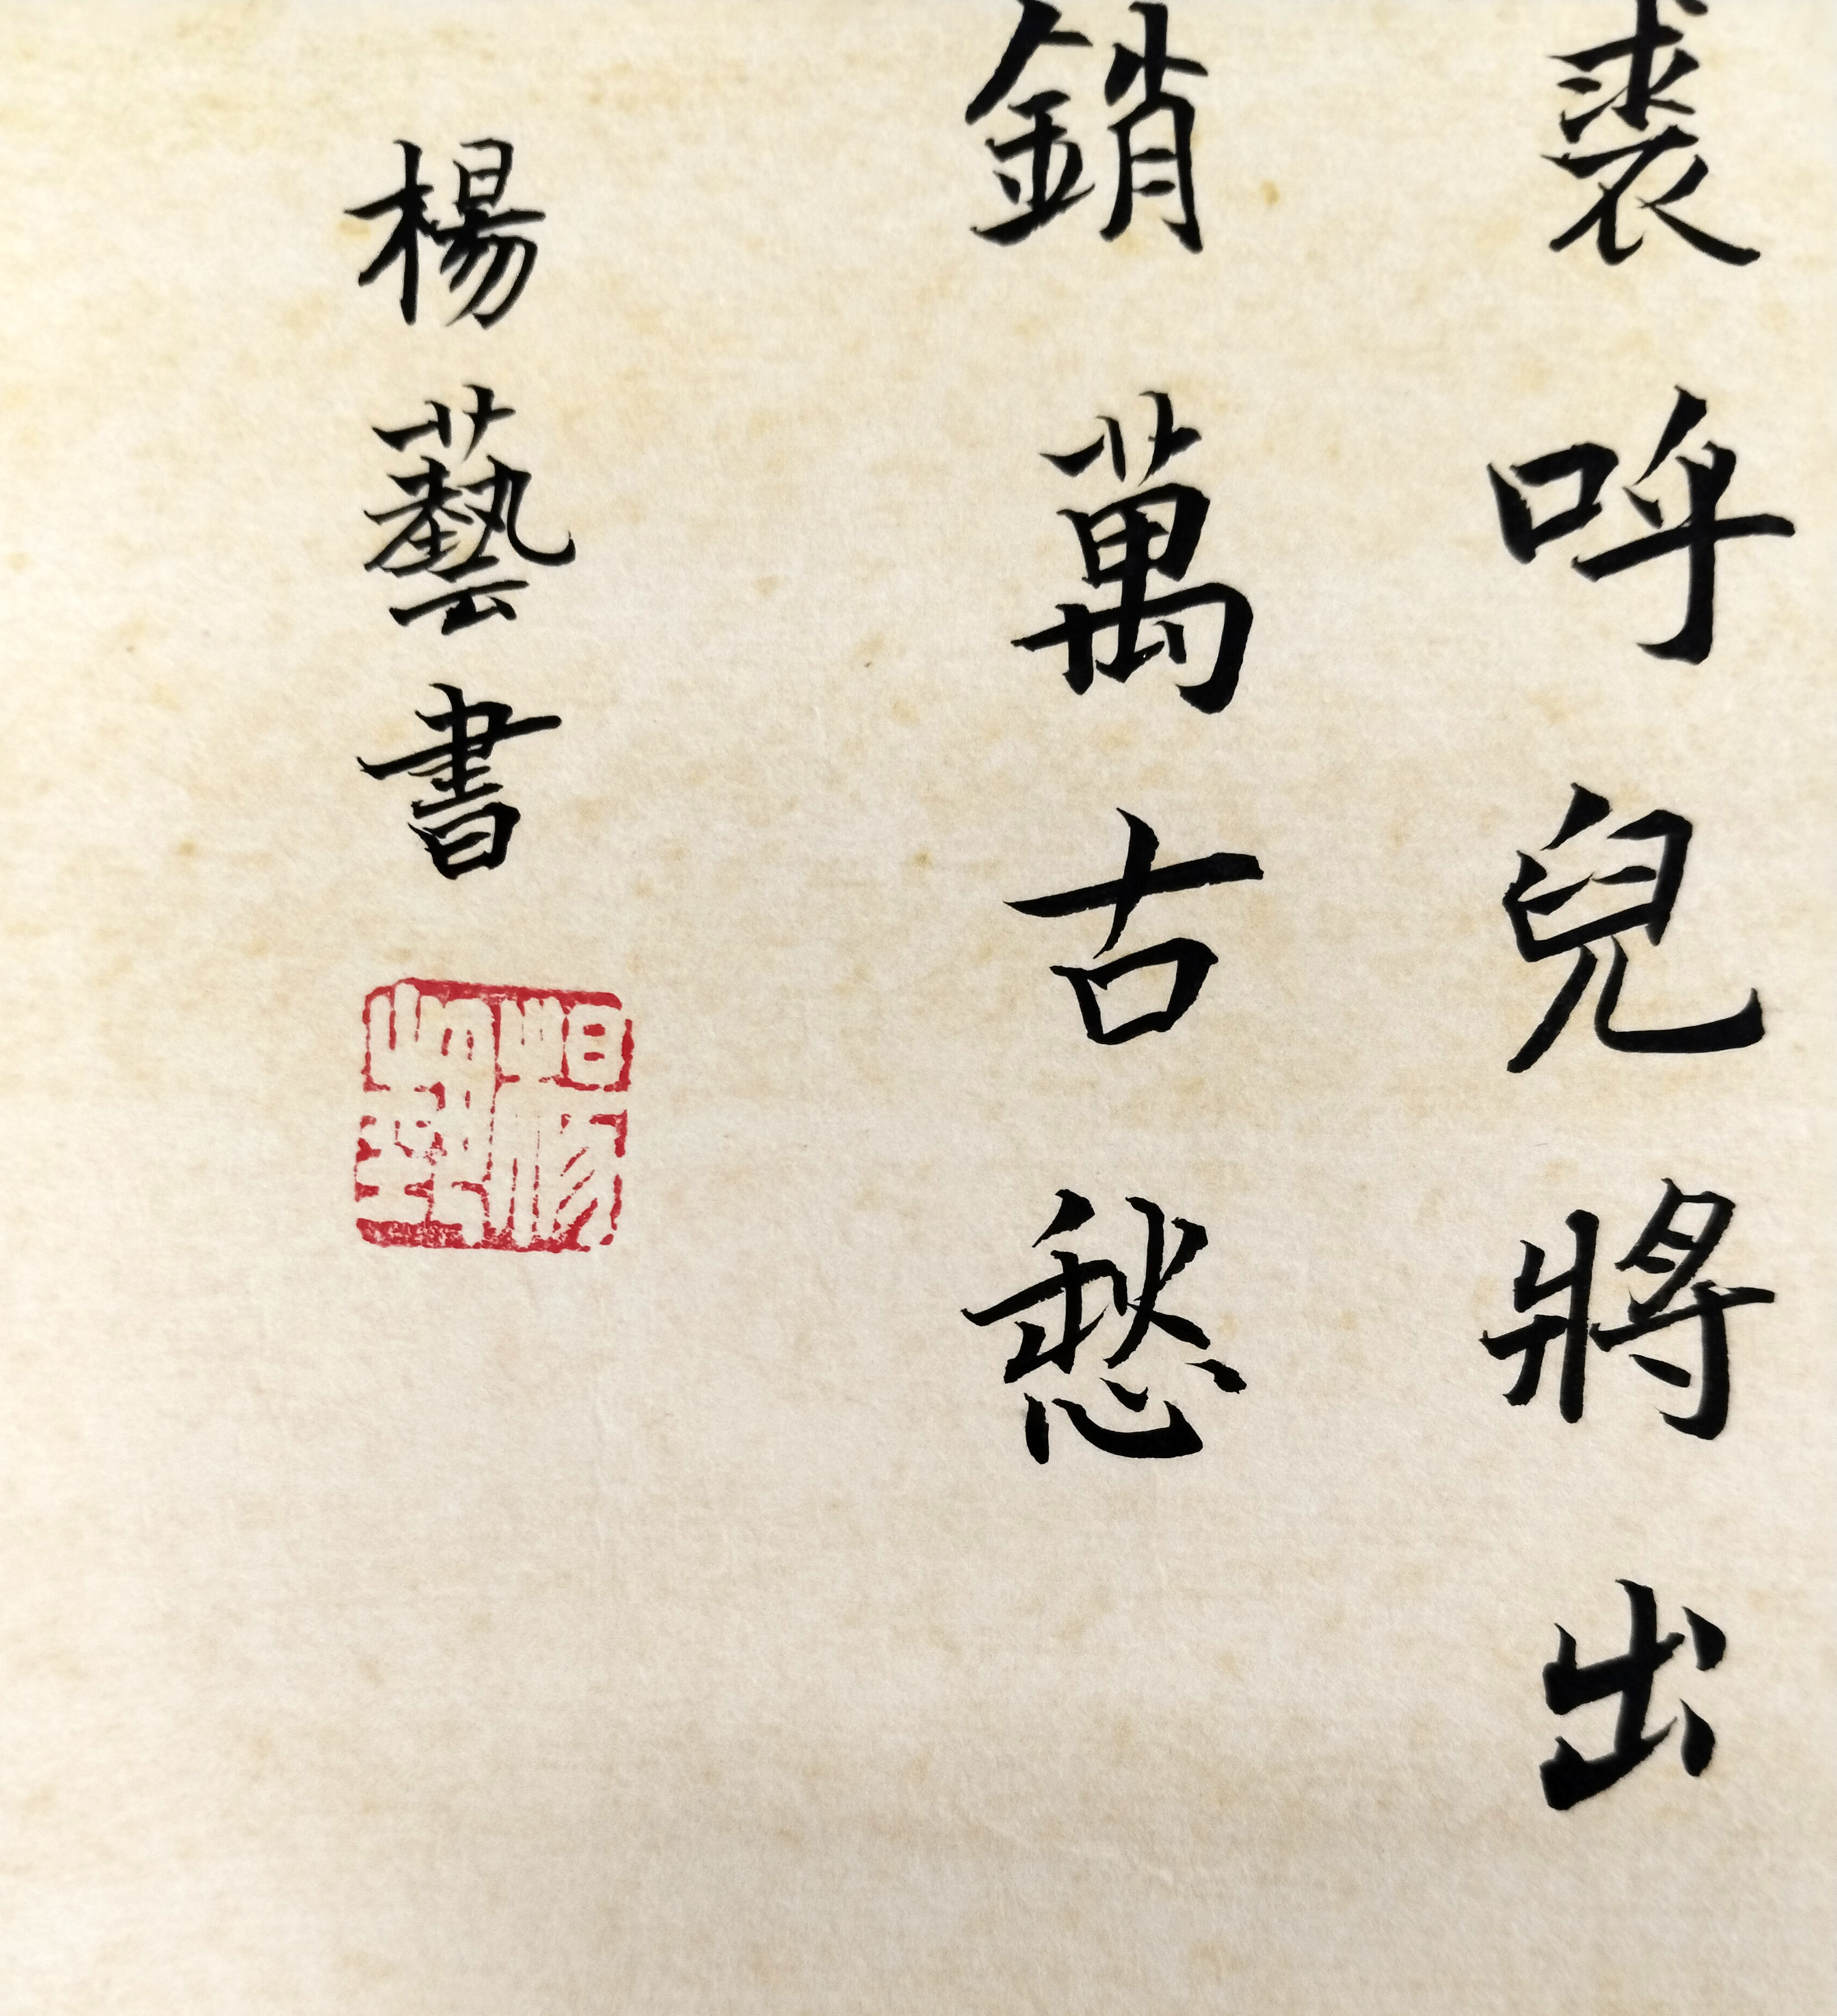 裘呼兒將出
銷萬古愁
楊藝書
楊藝